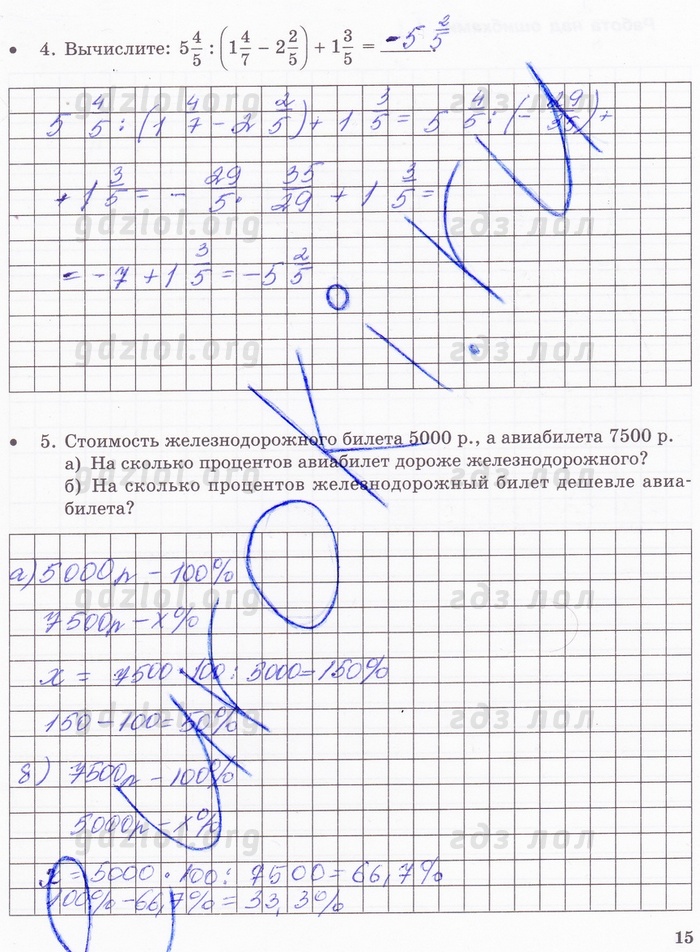 4. Вычислите: 5 4/5 : (1 4/7 − 2 2/5) + 1 3/5 = -5 2/5
5 4/5 : (1 4/7 - 2 2/5) + 1 3/5 = 5 4/5 : (- 29/35) +
+ 1 3/5 = - 29/5 · 35/29 + 1 3/5 =
= -7 + 1 3/5 = -5 2/5
5. Стоимость железнодорожного билета 5000 р., а авиабилета 7500 р.
а) На сколько процентов авиабилет дороже железнодорожного?
б) На сколько процентов железнодорожный билет дешевле авиа-
билета?
а) 5000р - 100%
7500р - x%
x = 7500 · 100 : 5000 = 150%
150 - 100 = 50%
б) 7500р - 100%
5000р - x%
x = 5000 · 100 : 7500 = 66,7%
100% - 66,7% = 33,3%
15
gdzlol.org гдз лол
gdzlol.org гдз лол
gdzlol.org гдз лол
gdzlol.org гдз лол
gdzlol.org гдз лол
gdzlol.org гдз лол
gdzlol.org гдз лол